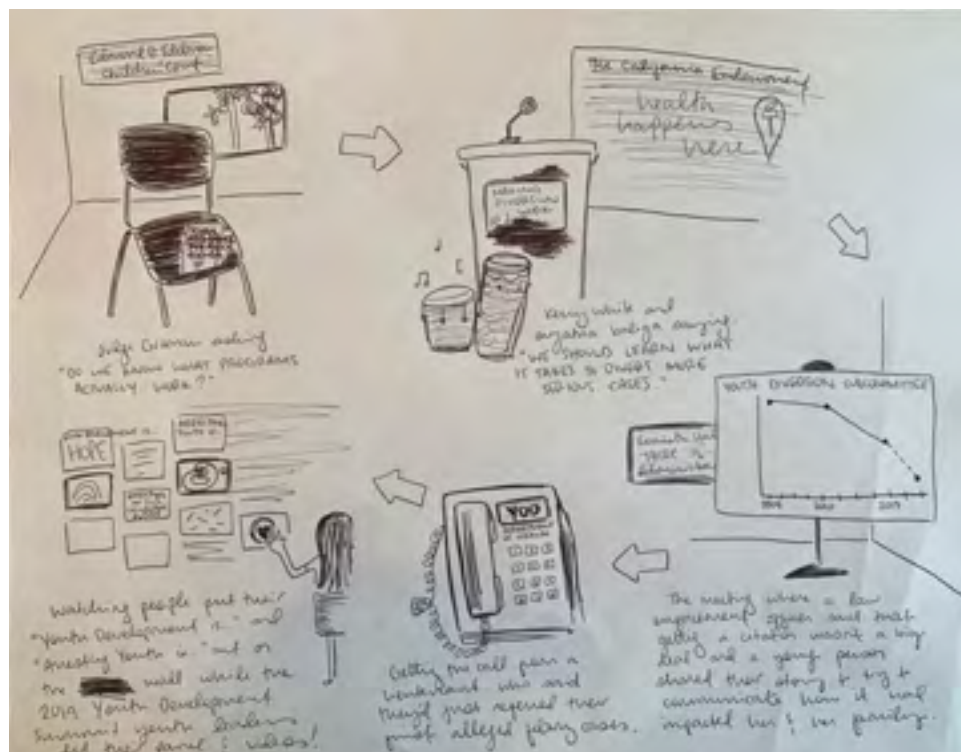 Children's Court
Judge asking
"DO WE KNOW WHAT PROGRAMS
ACTUALLY WORK?"
The California Endowment
health
happens
here
MAKING
DIVERSION
WORK
Kerry White and
saying
"WE SHOULD LEARN WHAT
IT TAKES TO DIVERT MORE
SERIOUS CASES."
YOUTH DIVERSION
The meeting where a law
enforcement officer said that
getting a citation wasn't a big
deal and a young person
shared their story to try to
communicate how it had
impacted her & her family.
YDD
DEPARTMENT
OF HEALTH
Getting the call from a
lieutenant who said
they'd just referred their
first alleged felony cases.
HOPE
Watching people put their
"Youth Development is.." and
"Arresting Youth is.." out on
the wall while the
2019 Youth Development
Summit youth leaders
led their panel & videos!